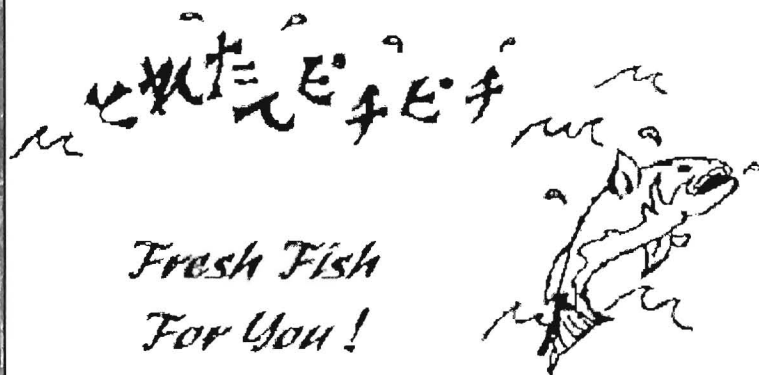 とれたてピチピチ
Fresh Fish
For You !